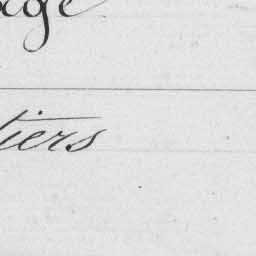 age
tiers